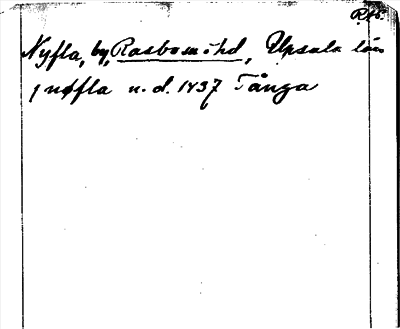 Nyfla, by, Rasbo sn o hd, Upsala län
j nøfla u. d. 1437 Tånga